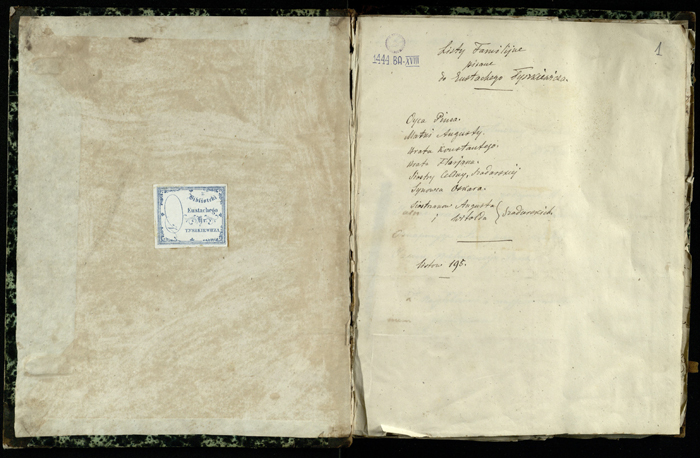 Biblioteki
Eustachego
Hr.
TYSZKIEWICZA
1444 BQ-XVIII
1
Listy Familijne
pisane
do Eustachego Tyszkiewicza.
Oyca Piusa.
Matki Augusty.
Brata Konstantego.
Brata Floryana.
Siostry Celiny,
Synowca Oskara.
Siostrzanow Augusta
i Witolda
Listow 195.